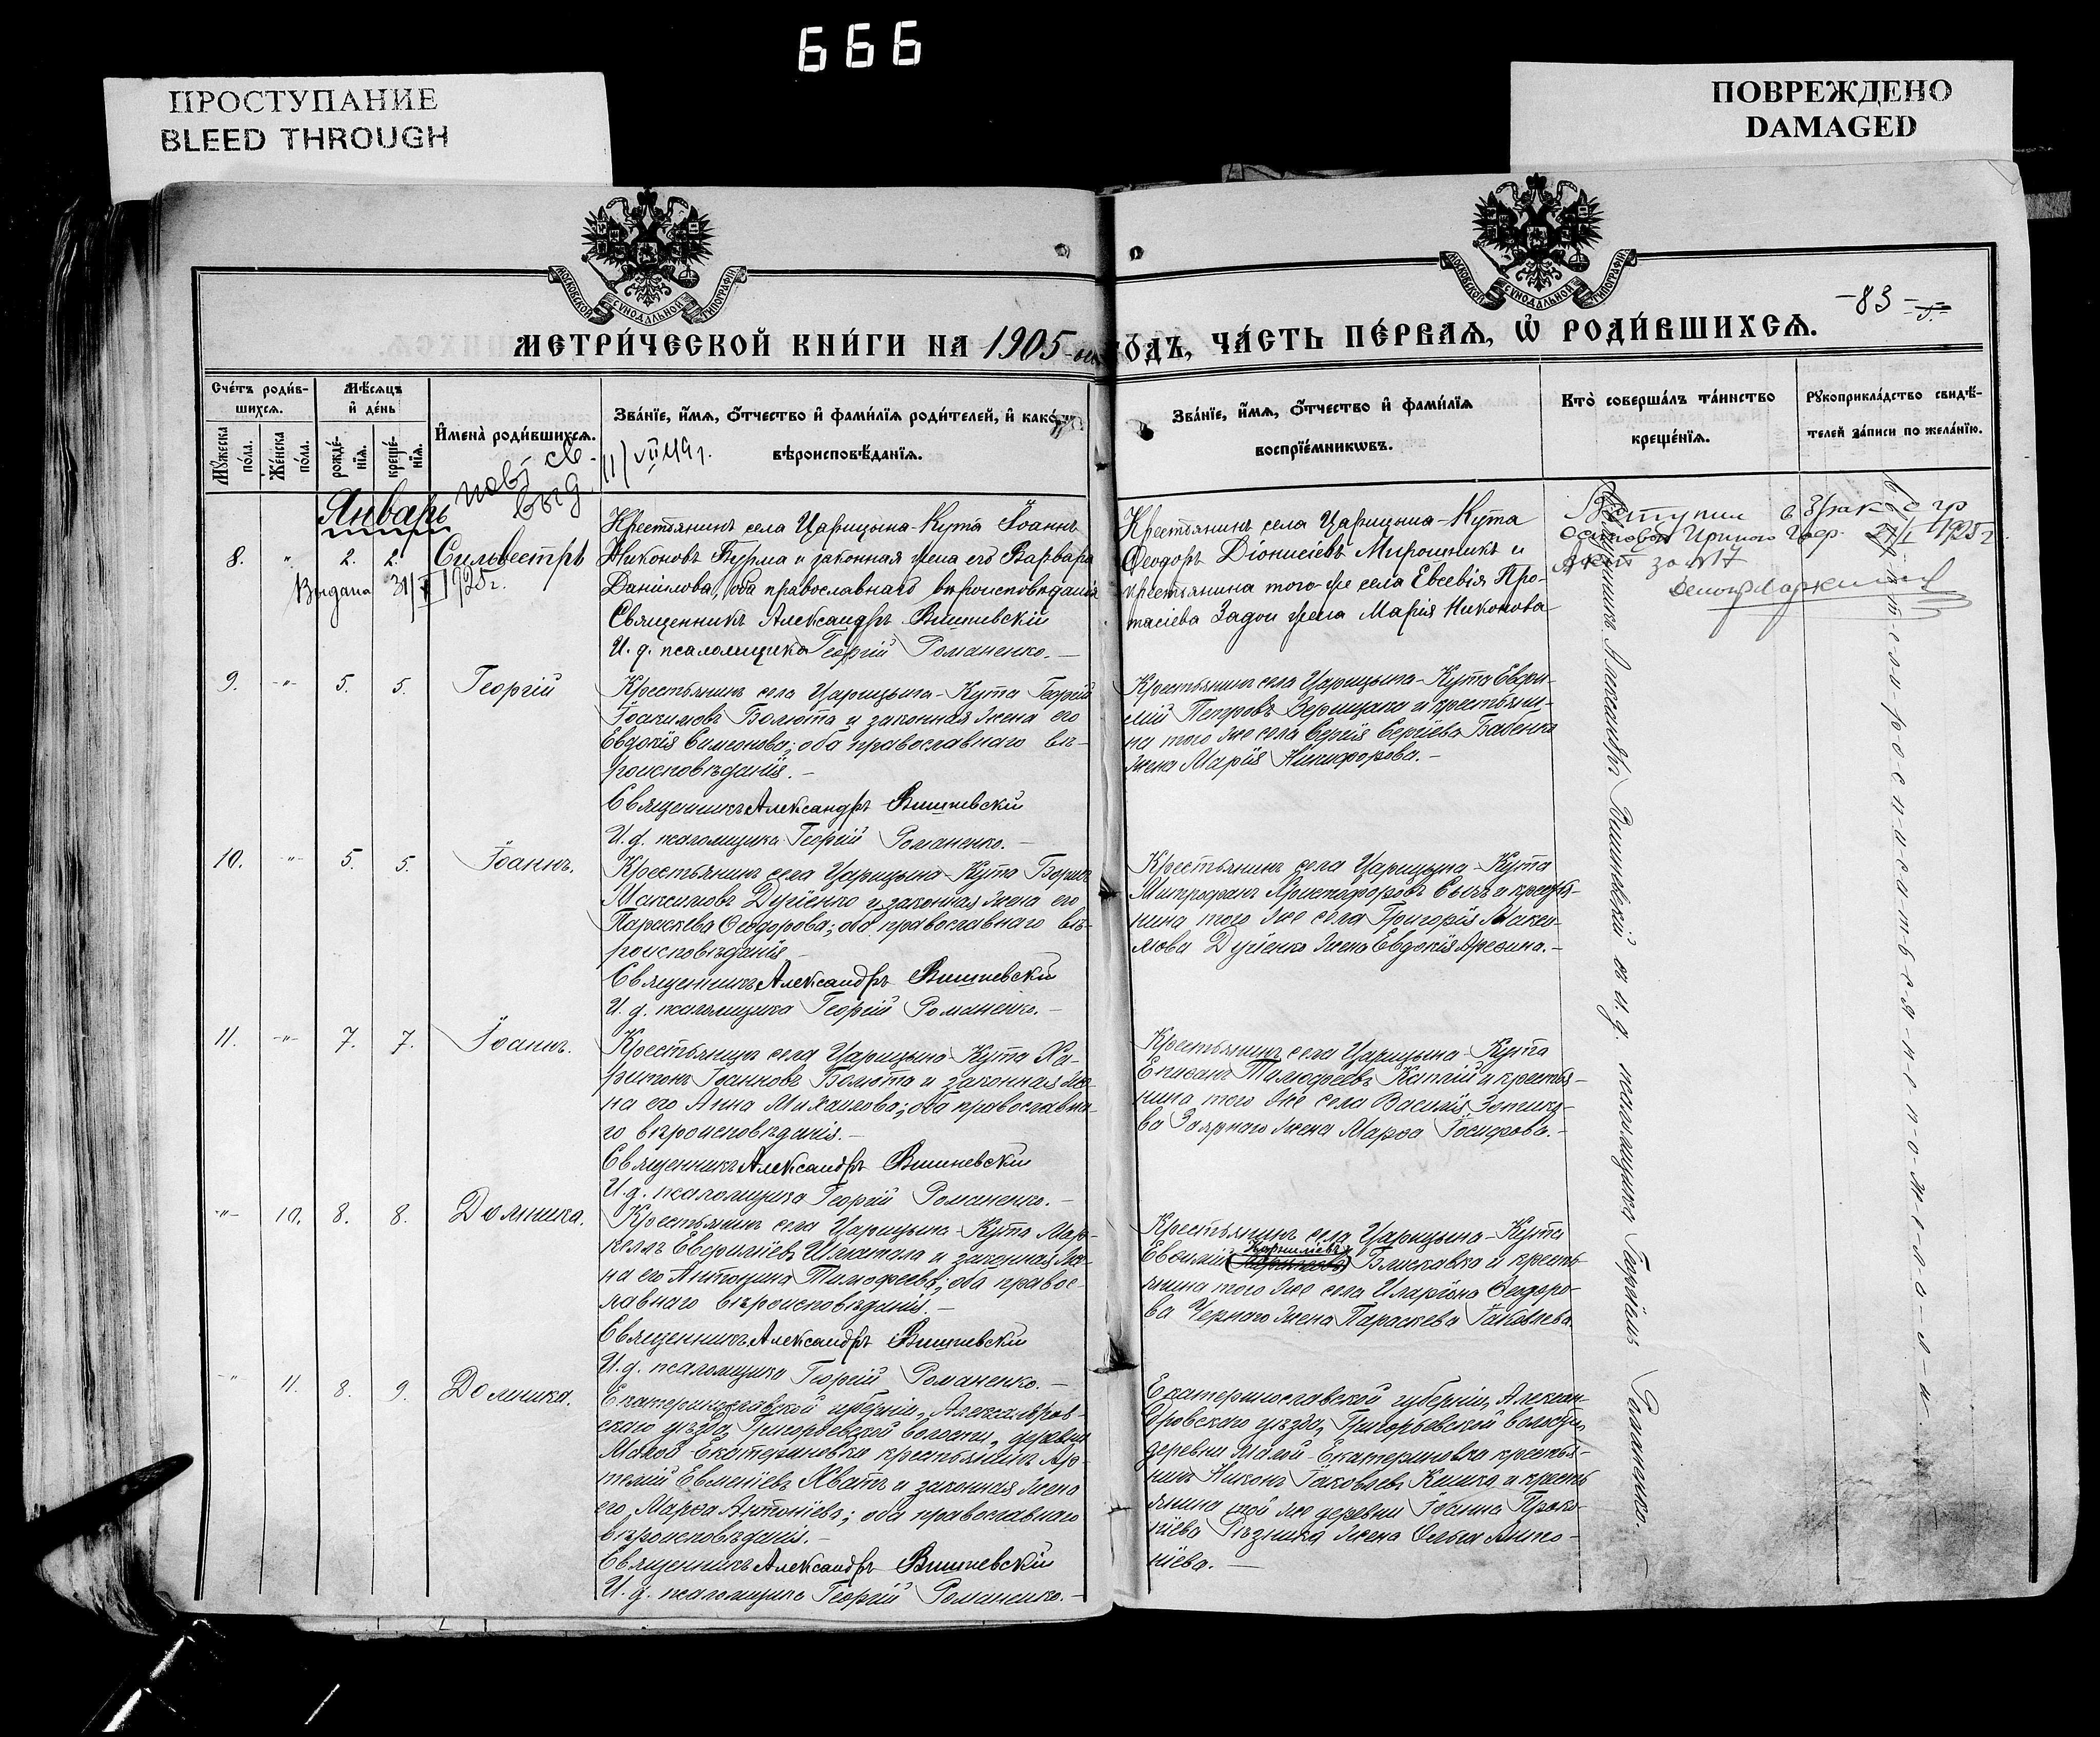 666
ПРОСТУПАНИЕ
BLEED THROUGH
ПОВРЕЖДЕНО
DAMAGED
МОСКОВСКОЙ СѴНОДАЛЬНОЙ ТИПОГРАФІИ
МОСКОВСКОЙ СѴНОДАЛЬНОЙ ТИПОГРАФІИ
-83-
МЕТРИ́ЧЕСКОЙ КНИ́ГИ НА 1905 ГО́ДЪ, ЧА́СТЬ ПЕ́РВАѦ, Ѡ҆ РОДИ́ВШИХСѦ.
Сче́тъ роди́в-
шихсѧ.
Мꙋ́жеска
по́ла.
Же́нска
по́ла.
Мѣ́сѧцъ
и҆ де́нь
рожде́-
нїѧ.
креще́-
нїѧ.
И҆мена̀ роди́вшихсѧ.
Зва́нїе, и҆́мѧ, ѻ҆́тчество и҆ фами́лїѧ роди́телей, и҆ како́гѡ
вѣроисповѣ́данїѧ.
Зва́нїе, и҆́мѧ, ѻ҆́тчество и҆ фами́лїѧ
воспрїе́мникѡвъ.
Кто̀ соверша́лъ та́инство
креще́нїѧ.
Рꙋкоприкла́дство свидѣ́-
телей за́писи по жела́нїю.
Январь
8. " 2. 2. Сильвестръ
Выдана 31/ 1925г.
Крестьянинъ села Царицына-Кута Іоаннъ
Никоновъ Бурма и законная жена его Варвара
Даніилова, оба православнаго вѣроисповѣданія
Священникъ Александръ Вишневскій
И. д. псаломщика Георгій Романенко.-
Крестьянинъ села Царицына-Кута
Ѳеодоръ Діонисіевъ Мирошникъ и
крестьянина того-же села Евсевія Про-
тасіева Задои жена Марія Никонова-
Вступил в брак с гр
Ириной 1925г
Акт за №17
9. -"- 5. 5. Георгій
Крестьянинъ села Царицына-Кута Георгій
Іоакимовъ Болюта и законная жена его
Евдокія Симеонова; оба православнаго вѣ-
роисповѣданія.-
Священникъ Александръ Вишневскій
И. д. псаломщика Георгій Романенко.-
Крестьянинъ села Царицына-Кута Евѳи-
мій Петровъ и крестьяни-
на того же села Сергія Сергіева Бабенка
жена Марія Никифорова.-
10. -"- 5. 5. Іоаннъ.
Крестьянинъ села Царицына-Кута Борисъ
Максимовъ Дугіенко и законная жена его
Параскева Ѳеодорова; оба православнаго вѣ-
роисповѣданія
Священникъ Александръ Вишневскій
И. д. псаломщика Георгій Романенко.-
Крестьянинъ села Царицына-Кута
Митрофанъ Христофоровъ Сычъ и крестья-
нина того же села Григорія Макси-
мова Дугіенка жена Евдокія .-
11. -"- 7. 7. Іоаннъ.
Крестьянинъ села Царицына-Кута Ха-
ритонъ Іоанновъ Болюта и законная же-
на его Анна Михаилова; оба православна-
го вѣроисповѣданія.-
Священникъ Александръ Вишневскій
И. д. псаломщика Георгій Романенко.-
Крестьянинъ села Царицына-Кута
Тимоѳеевъ Каплій и крестья-
нина того же села Василія
Заярнаго жена Марѳа Іосифова.-
-"- 10. 8. 8. Домника.
Крестьянинъ села Царицына-Кута Мар-
келлъ и законная же-
на его Антонина Тимофеева; оба правос-
лавнаго вѣроисповѣданія.-
Священникъ Александръ Вишневскій
И. д. псаломщика Георгій Романенко.-
Крестьянинъ села Царицына-Кута
Корниліевъ
Евѳимій Блискавка и кресть-
янина того же села Иларіона Ѳеодоро-
ва Чернаго жена Параскева Іаковлева.
-"- 11. 8. 9. Домника.
Екатеринославской губерніи, Александров-
скаго уѣзда, Григорьевской волости, деревни
Малой-Екатериновки крестьянинъ Ар-
темій Евменіевъ Хватъ и законная жена
его Марѳа Антоніева; оба православнаго
вѣроисповѣданія.-
Священникъ Александръ Вишневскій
И. д. псаломщика Георгій Романенко.-
Екатеринославской губерніи, Алексан-
дровскаго уѣзда, Григорьевской волости,
деревни Малой-Екатериновки крестья-
нинъ Никонъ Іаковлевъ Кишка и кресть-
янина той же деревни Іоанна Проко-
піева жена Анто-
ніева.-
Священникъ Александръ Вишневскій съ и. д. псаломщика Георгіемъ Романенко.-